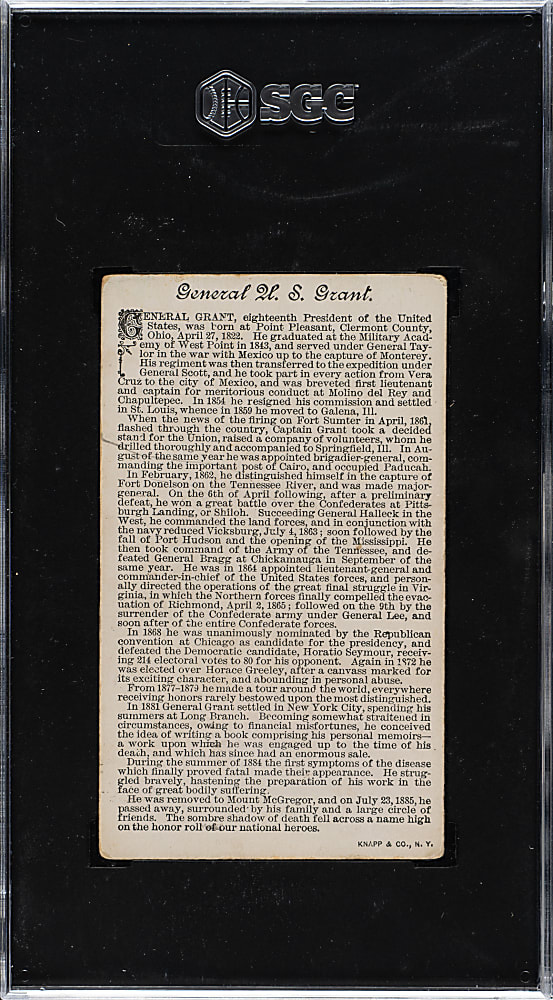 SGC
General U. S. Grant.
GENERAL GRANT, eighteenth President of the United
States, was born at Point Pleasant, Clermont County,
Ohio, April 27, 1822. He graduated at the Military Acad-
emy of West Point in 1843, and served under General Tay-
lor in the war with Mexico up to the capture of Monterey.
His regiment was then transferred to the expedition under
General Scott, and he took part in every action from Vera
Cruz to the city of Mexico, and was breveted first lieutenant
and captain for meritorious conduct at Molino del Rey and
Chapultepec. In 1854 he resigned his commission and settled
in St. Louis, whence in 1859 he moved to Galena, Ill.
When the news of the firing on Fort Sumter in April, 1861,
flashed through the country, Captain Grant took a decided
stand for the Union, raised a company of volunteers, whom he
drilled thoroughly and accompanied to Springfield, Ill. In Au-
gust of the same year he was appointed brigadier-general, com-
manding the important post of Cairo, and occupied Paducah.
In February, 1862, he distinguished himself in the capture of
Fort Donelson on the Tennessee River, and was made major-
general. On the 6th of April following, after a preliminary
defeat, he won a great battle over the Confederates at Pitts-
burgh Landing, or Shiloh. Succeeding General Halleck in the
West, he commanded the land forces, and in conjunction with
the navy reduced Vicksburg, July 4, 1863; soon followed by the
fall of Port Hudson and the opening of the Mississippi. He
then took command of the Army of the Tennessee, and de-
feated General Bragg at Chickamauga in September of the
same year. He was in 1864 appointed lieutenant-general and
commander-in-chief of the United States forces, and person-
ally directed the operations of the great final struggle in Vir-
ginia, in which the Northern forces finally compelled the evac-
uation of Richmond, April 2, 1865; followed on the 9th by the
surrender of the Confederate army under General Lee, and
soon after of the entire Confederate forces.
In 1868 he was unanimously nominated by the Republican
convention at Chicago as candidate for the presidency, and
defeated the Democratic candidate, Horatio Seymour, receiv-
ing 214 electoral votes to 80 for his opponent. Again in 1872 he
was elected over Horace Greeley, after a canvass marked for
its exciting character, and abounding in personal abuse.
From 1877-1879 he made a tour around the world, everywhere
receiving honors rarely bestowed upon the most distinguished.
In 1881 General Grant settled in New York City, spending his
summers at Long Branch. Becoming somewhat straitened in
circumstances, owing to financial misfortunes, he conceived
the idea of writing a book comprising his personal memoirs—
a work upon which he was engaged up to the time of his
death, and which has since had an enormous sale.
During the summer of 1884 the first symptoms of the disease
which finally proved fatal made their appearance. He strug-
gled bravely, hastening the preparation of his work in the
face of great bodily suffering.
He was removed to Mount McGregor, and on July 23, 1885, he
passed away, surrounded by his family and a large circle of
friends. The sombre shadow of death fell across a name high
on the honor roll of our national heroes.
KNAPP & CO., N. Y.